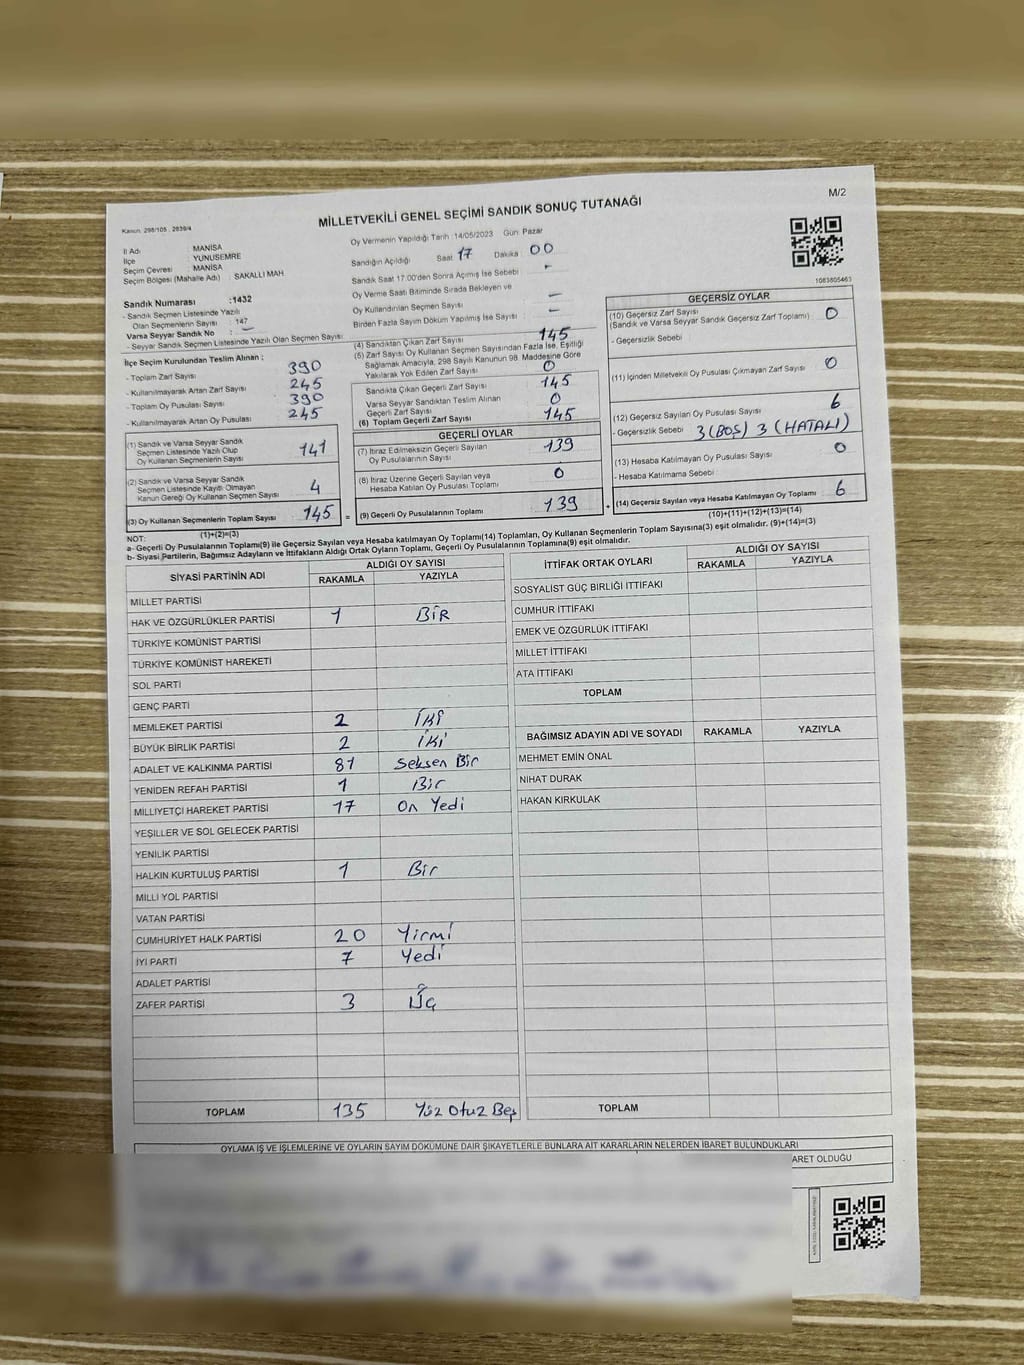 M/2
MİLLETVEKİLİ GENEL SEÇİMİ SANDIK SONUÇ TUTANAĞI
Kanun. 298/105 , 2839/4
İl Adı : MANİSA
İlçe : YUNUSEMRE
Seçim Çevresi : MANİSA
Seçim Bölgesi (Mahalle Adı) : SAKALLI MAH
Sandık Numarası :1432
- Sandık Seçmen Listesinde Yazılı
Olan Seçmenlerin Sayısı : 147
Varsa Seyyar Sandık No : -
- Seyyar Sandık Seçmen Listesinde Yazılı Olan Seçmen Sayısı:
Oy Vermenin Yapıldığı Tarih :14/05/2023 Gün: Pazar
Sandığın Açıldığı Saat 17 Dakika 00
Sandık Saat 17.00'den Sonra Açılmış İse Sebebi : -
Oy Verme Saati Bitiminde Sırada Bekleyen ve
Oy Kullandırılan Seçmen Sayısı : -
Birden Fazla Sayım Döküm Yapılmış İse Sayısı : -
1083805463
İlçe Seçim Kurulundan Teslim Alınan ;
- Toplam Zarf Sayısı : 390
- Kullanılmayarak Artan Zarf Sayısı : 245
- Toplam Oy Pusulası Sayısı : 390
- Kullanılmayarak Artan Oy Pusulası : 245
(1) Sandık ve Varsa Seyyar Sandık
Seçmen Listesinde Yazılı Olup
Oy Kullanan Seçmenlerin Sayısı 141
(2) Sandık ve Varsa Seyyar Sandık
Seçmen Listesinde Kayıtlı Olmayan
Kanun Gereği Oy Kullanan Seçmen Sayısı 4
(3) Oy Kullanan Seçmenlerin Toplam Sayısı 145
(1)+(2)=(3)
(4) Sandıktan Çıkan Zarf Sayısı 145
(5) Zarf Sayısı Oy Kullanan Seçmen Sayısından Fazla İse, Eşitliği
Sağlamak Amacıyla, 298 Sayılı Kanunun 98. Maddesine Göre
Yakılarak Yok Edilen Zarf Sayısı 0
Sandıkta Çıkan Geçerli Zarf Sayısı 145
Varsa Seyyar Sandıktan Teslim Alınan
Geçerli Zarf Sayısı 0
(6) Toplam Geçerli Zarf Sayısı 145
GEÇERLİ OYLAR
(7) İtiraz Edilmeksizin Geçerli Sayılan
Oy Pusulalarının Sayısı 139
(8) İtiraz Üzerine Geçerli Sayılan veya
Hesaba Katılan Oy Pusulası Toplamı 0
= (9) Geçerli Oy Pusulalarının Toplamı 139
GEÇERSİZ OYLAR
(10) Geçersiz Zarf Sayısı
(Sandık ve Varsa Seyyar Sandık Geçersiz Zarf Toplamı) 0
- Geçersizlik Sebebi :
(11) İçinden Milletvekili Oy Pusulası Çıkmayan Zarf Sayısı 0
(12) Geçersiz Sayılan Oy Pusulası Sayısı 6
- Geçersizlik Sebebi : 3 (BOŞ) 3 (HATALI)
(13) Hesaba Katılmayan Oy Pusulası Sayısı 0
- Hesaba Katılmama Sebebi :
+ (14) Geçersiz Sayılan veya Hesaba Katılmayan Oy Toplamı 6
(10)+(11)+(12)+(13)=(14)
NOT:
a- Geçerli Oy Pusulalarının Toplamı(9) ile Geçersiz Sayılan veya Hesaba katılmayan Oy Toplamı(14) Toplamları, Oy Kullanan Seçmenlerin Toplam Sayısına(3) eşit olmalıdır. (9)+(14)=(3)
b- Siyasi Partilerin, Bağımsız Adayların ve İttifakların Aldığı Ortak Oyların Toplamı, Geçerli Oy Pusulalarının Toplamına(9) eşit olmalıdır.
SİYASİ PARTİNİN ADI ALDIĞI OY SAYISI
RAKAMLA YAZIYLA
MİLLET PARTİSİ
HAK VE ÖZGÜRLÜKLER PARTİSİ 1 BİR
TÜRKİYE KOMÜNİST PARTİSİ
TÜRKİYE KOMÜNİST HAREKETİ
SOL PARTİ
GENÇ PARTİ
MEMLEKET PARTİSİ 2 İki
BÜYÜK BİRLİK PARTİSİ 2 İki
ADALET VE KALKINMA PARTİSİ 81 Seksen Bir
YENİDEN REFAH PARTİSİ 1 Bir
MİLLİYETÇİ HAREKET PARTİSİ 17 On Yedi
YEŞİLLER VE SOL GELECEK PARTİSİ
YENİLİK PARTİSİ
HALKIN KURTULUŞ PARTİSİ 1 Bir
MİLLİ YOL PARTİSİ
VATAN PARTİSİ
CUMHURİYET HALK PARTİSİ 20 Yirmi
İYİ PARTİ 7 Yedi
ADALET PARTİSİ
ZAFER PARTİSİ 3 Üç
TOPLAM 135 Yüz Otuz Beş
İTTİFAK ORTAK OYLARI ALDIĞI OY SAYISI
RAKAMLA YAZIYLA
SOSYALİST GÜÇ BİRLİĞİ İTTİFAKI
CUMHUR İTTİFAKI
EMEK VE ÖZGÜRLÜK İTTİFAKI
MİLLET İTTİFAKI
ATA İTTİFAKI
TOPLAM
BAĞIMSIZ ADAYIN ADI VE SOYADI RAKAMLA YAZIYLA
MEHMET EMİN ÖNAL
NİHAT DURAK
HAKAN KIRKULAK
TOPLAM
OYLAMA İŞ VE İŞLEMLERİNE VE OYLARIN SAYIM DÖKÜMÜNE DAİR ŞİKAYETLERLE BUNLARA AİT KARARLARIN NELERDEN İBARET BULUNDUKLARI
ARET OLDUĞU